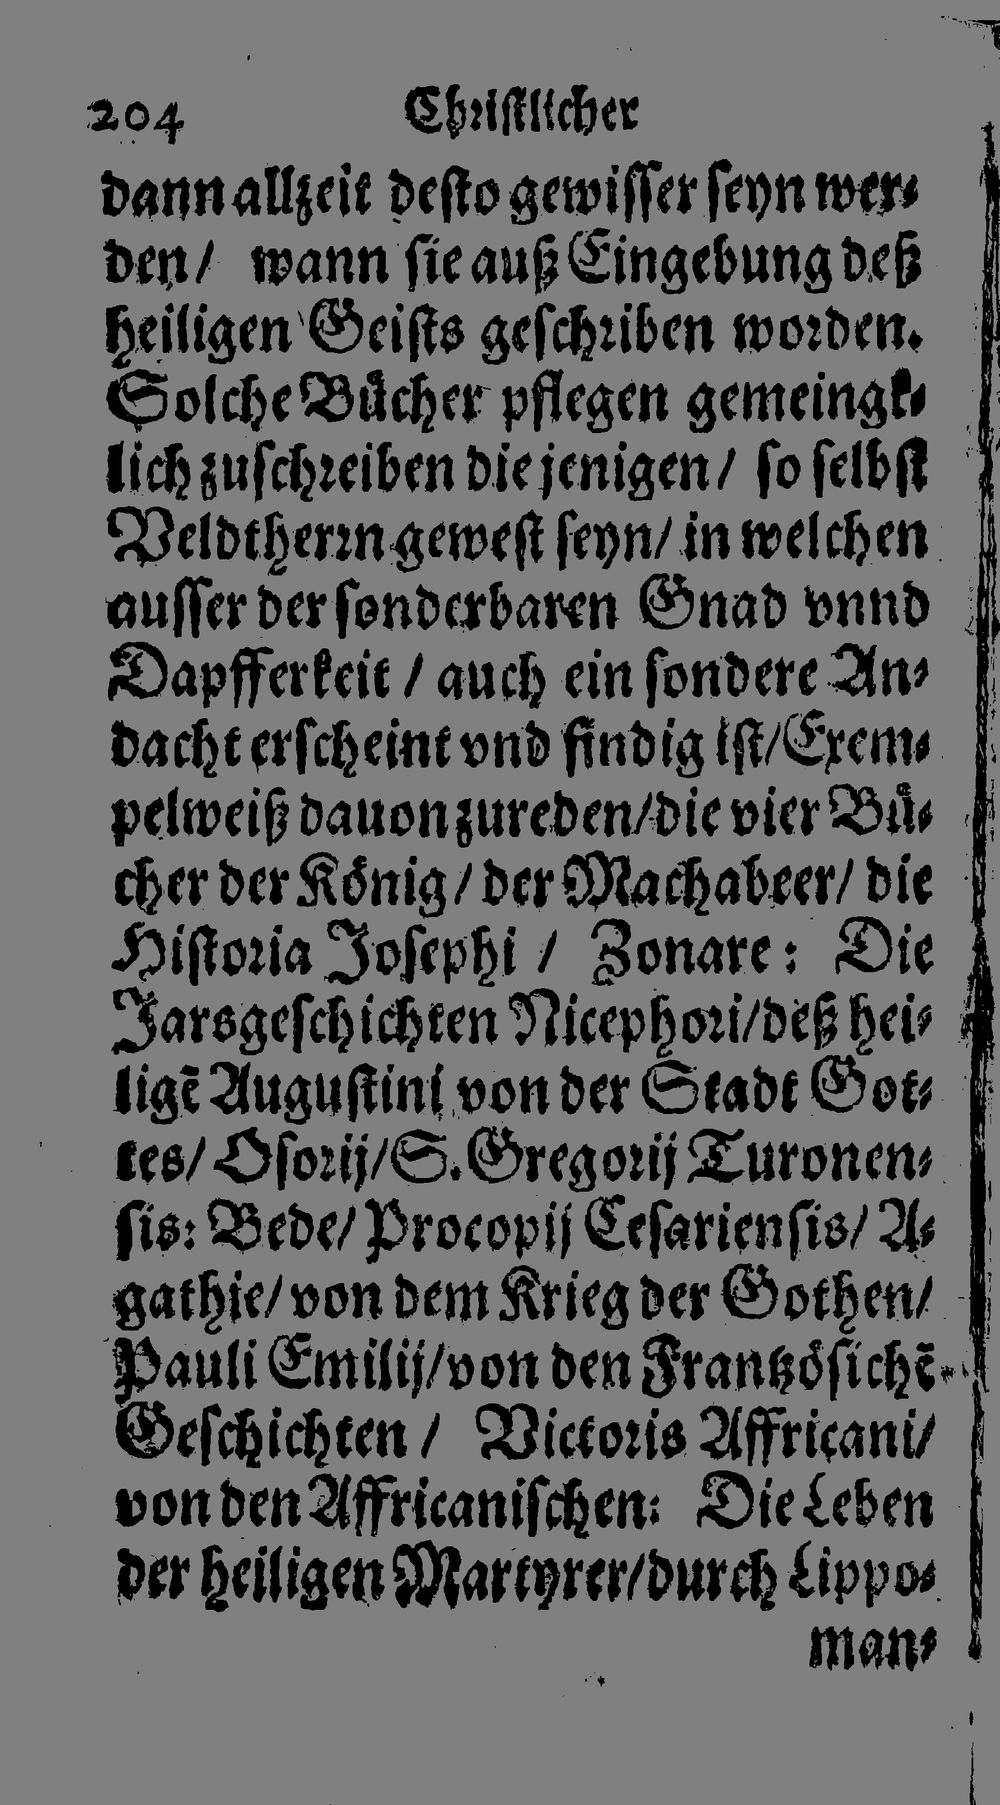 204 Christlicher
dann allzeit desto gewisser seyn wer⸗
den/ wann sie auß Eingebung deß
heiligen Geists geschriben worden.
Solche Bücher pflegen gemeingk⸗
lich zuschreiben die jenigen/ so selbst
Veldtherrn gewest seyn/ in welchen
ausser der sonderbaren Gnad vnnd
Dapfferkeit / auch ein sondere An⸗
dacht erscheint vnd findig ist/ Exem⸗
pelweiß dauon zureden/ die vier Bü⸗
cher der König/ der Machabeer/ die
Historia Josephi / Zonare: Die
Jarsgeschichten Nicephori/ deß hei⸗
ligē Augustini von der Stadt Got⸗
tes/ Osorij/ S. Gregorij Turonen⸗
sis: Bede/ Procopij Cesariensis/ A⸗
gathie/ von dem Krieg der Gothen/
Pauli Emilij/ von den Frantzösichē
Geschichten / Victoris Affricani/
von den Affricanischen: Die Leben
der heiligen Martyrer/ durch Lippo⸗
man⸗